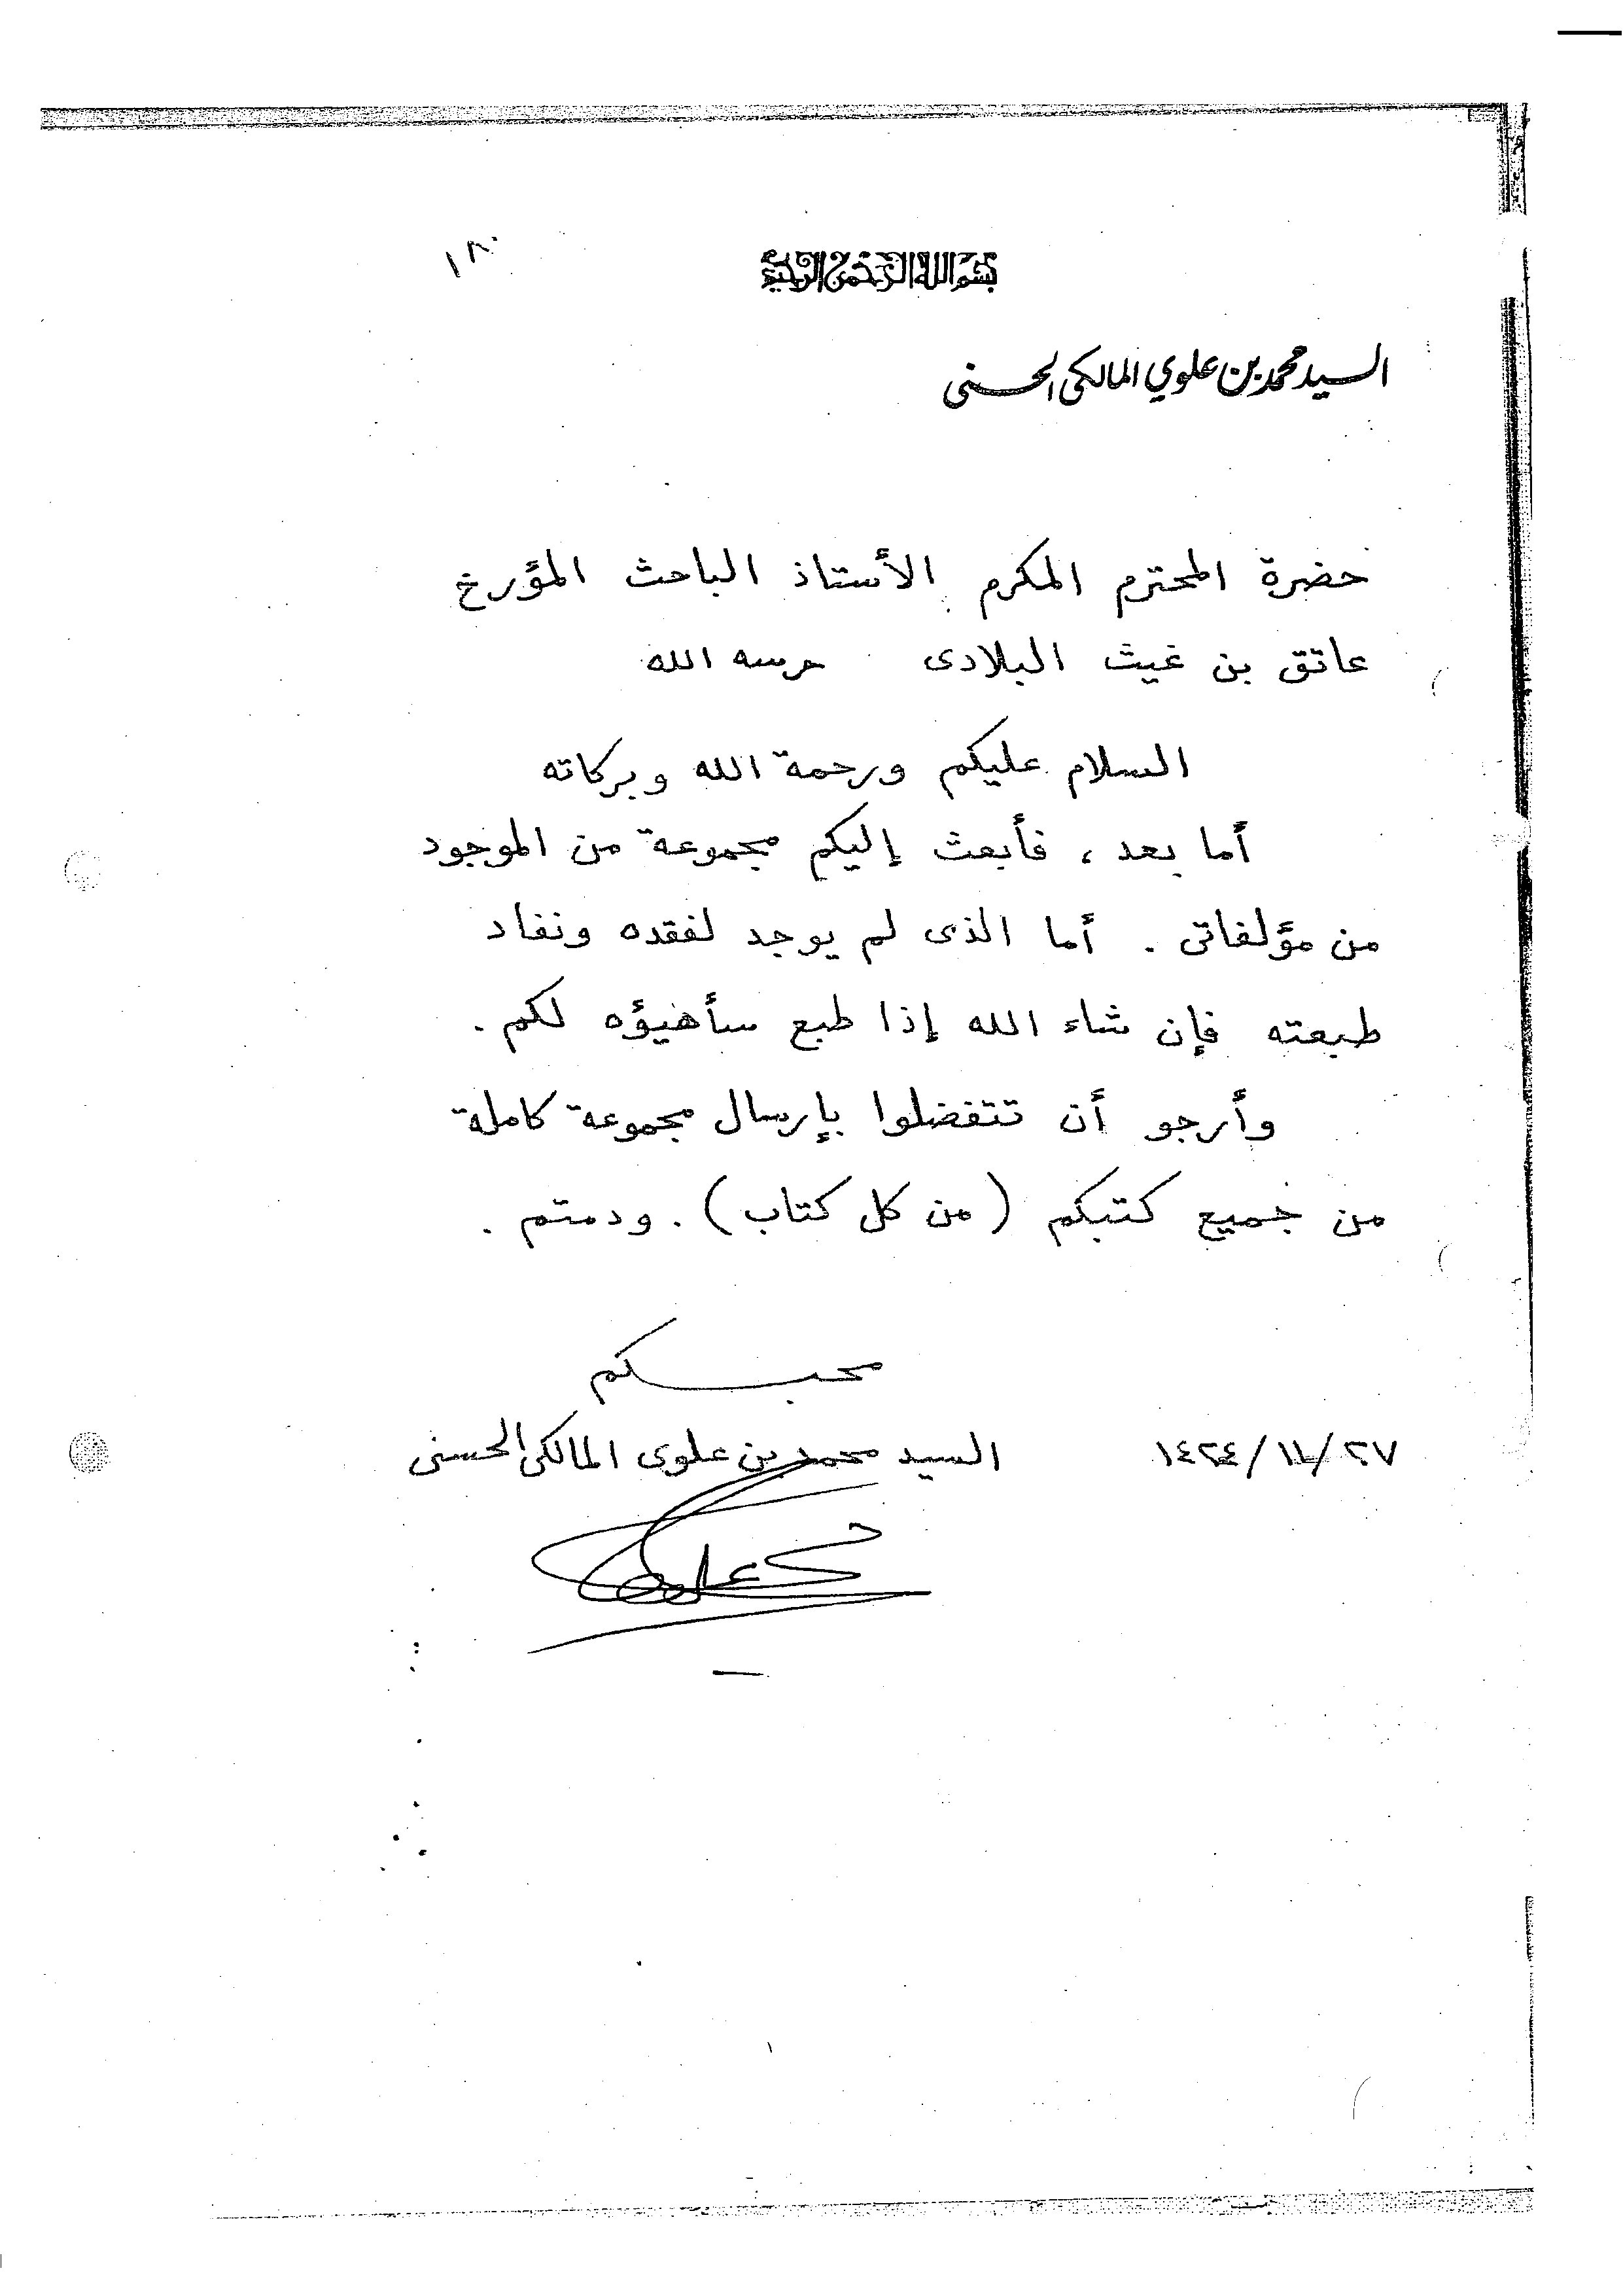 ١٨٠
بسم الله الرحمن الرحيم
السيد محمد بن علوي المالكي الحسني
حضرة المحترم المكرم الأستاذ الباحث المؤرخ
عاتق بن غيث البلادى حرسه الله
السلام عليكم ورحمة الله وبركاته
أما بعد ، فأبعث إليكم مجموعة من الموجود
من مؤلفاتى . أما الذى لم يوجد لفقده ونفاد
طبعته فإن شاء الله إذا طبع سأهيؤه لكم .
وأرجو أن تتفضلوا بإرسال مجموعة كاملة
من جميع كتبكم ( من كل كتاب ) . ودمتم .
محبكم
السيد محمد بن علوى المالكى الحسنى
٢٧/١١/١٤٢٤